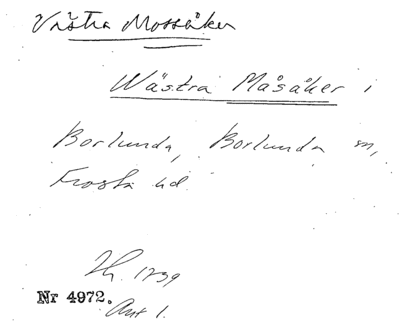 Västra Mossåker
Wästra Måsåker i
Borlunda, Borlunda sn,
Frosta hd.
Th. 1739
Nr 4972.
Ant 1.